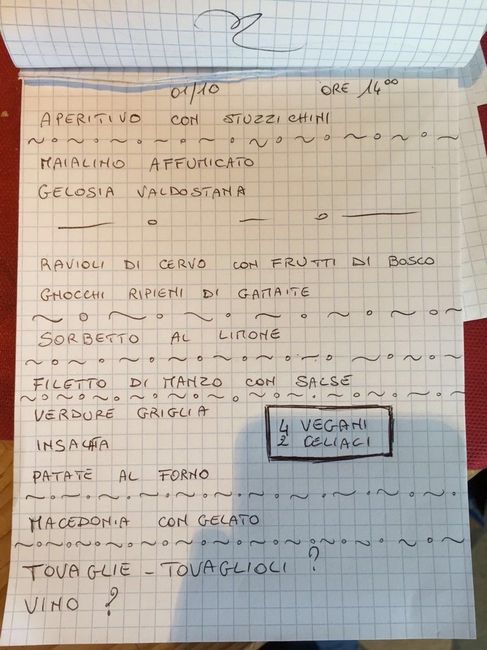 01/10 ORE 14⁰⁰
APERITIVO CON STUZZICHINI
MAIALINO AFFUMICATO
GELOSIA VALDOSTANA
RAVIOLI DI CERVO CON FRUTTI DI BOSCO
GNOCCHI RIPIENI DI GAMAITE
SORBETTO AL LIMONE
FILETTO DI MANZO CON SALSE
VERDURE GRIGLIA
4 VEGANI
2 CELIACI
INSALATA
PATATE AL FORNO
MACEDONIA CON GELATO
TOVAGLIE - TOVAGLIOLI ?
VINO ?